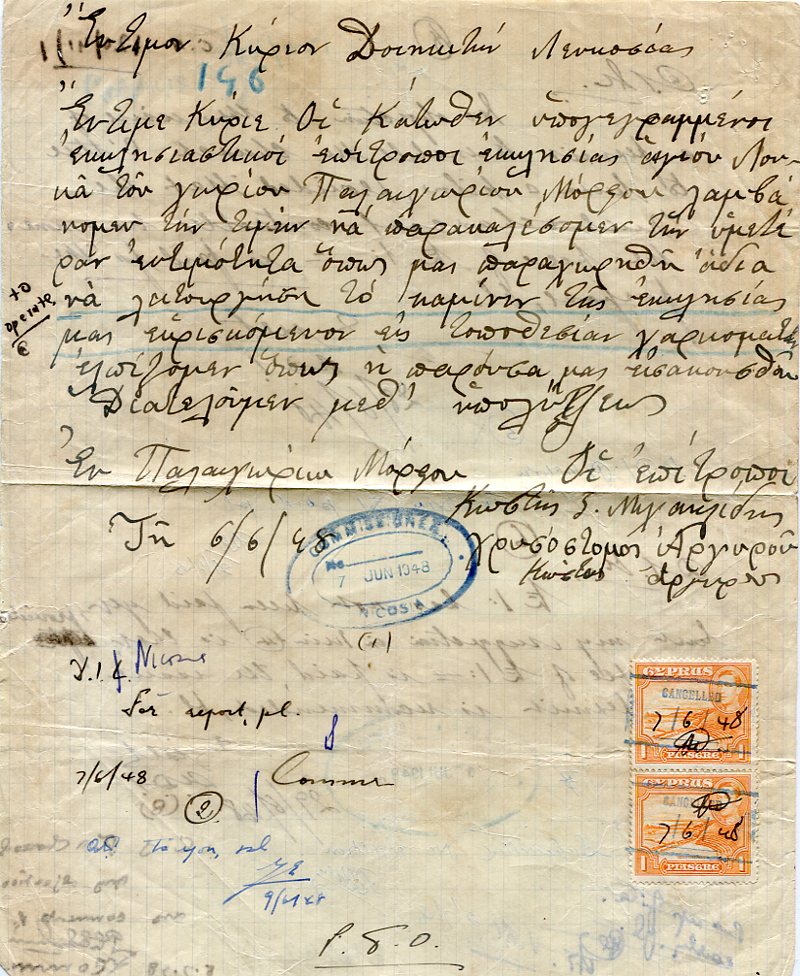 Ἔντιμον Κύριον Διοικητὴν Λευκοσίας
146
Ἔντιμε Κύριε Οἱ Κάτωθεν ὑπογεγραμμένοι
ἐκκλησιαστικοί ἐπίτροποι ἐκκλησίας ἁγίου Λου-
κᾶ τοῦ χωρίου Παλαιχωρίου Μόρφου λαμβά
νομεν τὴν τιμὴν νὰ παρακαλέσομεν τὴν ὑμετέ
ραν ἐντιμότητα ὅπως μας παραχωρηθῆ ἄδια
νὰ λιτουργήση τὸ καμίνιν τῆς ἐκκλησίας
μας εὑρισκόμενον εἰς τοποθεσίαν
ἐλπίζομεν ὅπως ἡ παρούσα μας εἰσακουσθῆ
Διατελοῦμεν μεθ' ὑπολήψεως
to
operate
Ἐν Παλαιχωρίω Μόρφου Οἱ ἐπίτροποι
Κωστῆς Σ. Μιχαηλίδης
Τῆ 6/6/48
Χρυσόστομος Ἀργυροῦ
Κώστας Ἀργυροῦ
COMMISSIONER
No
7 JUN 1948
NICOSIA
(1)
Nicosia
For report, pl.
7/6/48
Commr
(2)
to you, pl
9/6/48
P.S.O.
CYPRUS
CANCELLED
7/6/48
1 PIASTRE 1
CYPRUS
CANCELLED
7/6/48
1 PIASTRE 1